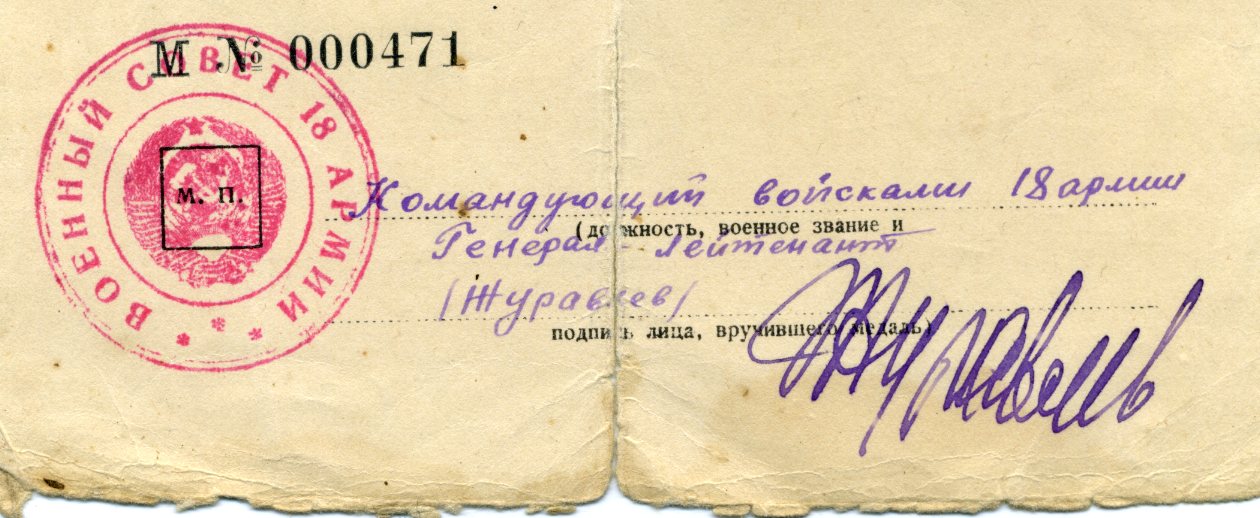 М № 000471
ВОЕННЫЙ СОВЕТ 18 АРМИИ
М. П.
Командующий войсками 18 армии
(должность, военное звание и
Генерал-лейтенант
/Журавлев/
подпись лица, вручившего медаль)
Журавлев